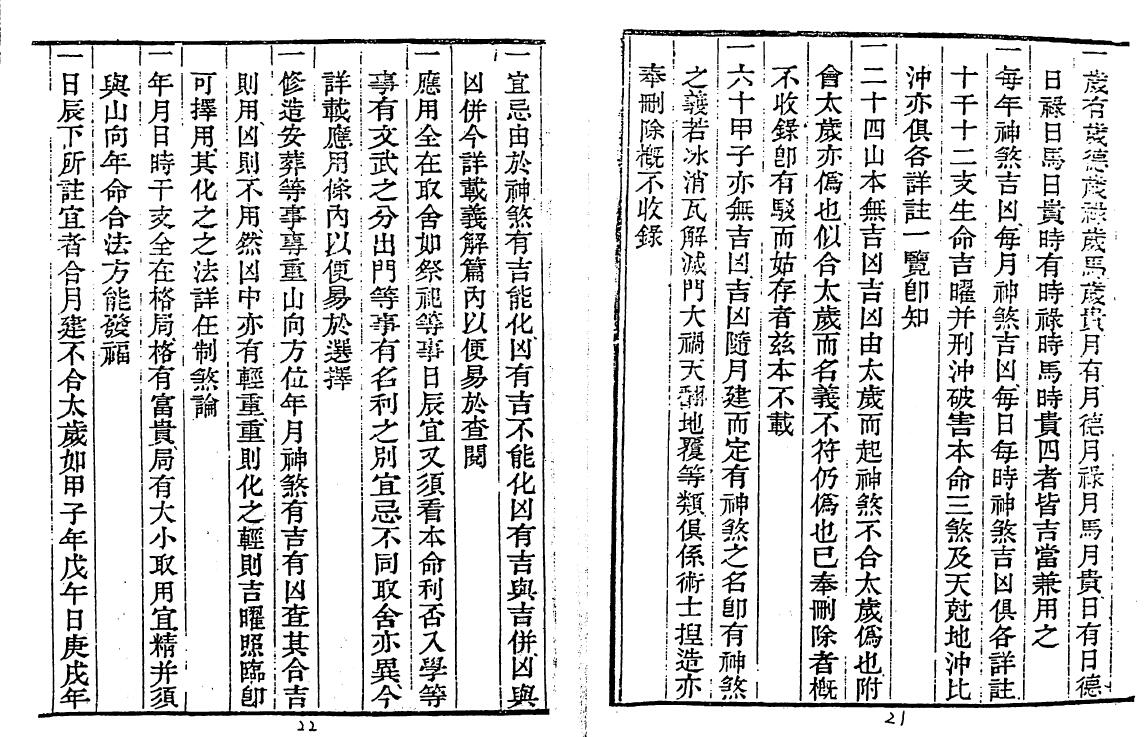 一歲有歲德歲祿歲馬歲貴月有月德月祿月馬月貴日有日德
日祿日馬日貴時有時祿時馬時貴四者皆吉當兼用之
一每年神煞吉凶每月神煞吉凶每日每時神煞吉凶俱各詳註
十干十二支生命吉曜并刑沖破害本命三煞及天尅地沖比
沖亦俱各詳註一覽卽知
一二十四山本無吉凶吉凶由太歲而起神煞不合太歲僞也附
會太歲亦僞也似合太歲而名義不符仍僞也已奉刪除者概
不收錄卽有駁而姑存者茲本不載
一六十甲子亦無吉凶吉凶隨月建而定有神煞之名卽有神煞
之義若冰消瓦解滅門大禍天翻地覆等類俱係術士揑造亦
奉刪除概不收錄
21
一宜忌由於神煞有吉能化凶有吉不能化凶有吉與吉併凶與
凶併今詳載義解篇內以便易於查閱
一應用全在取舍如祭祀等事日辰宜又須看本命利否入學等
事有文武之分出門等事有名利之別宜忌不同取舍亦異今
詳載應用條內以便易於選擇
一修造安葬等事專重山向方位年月神煞有吉有凶查其合吉
則用凶則不用然凶中亦有輕重重則化之輕則吉曜照臨卽
可擇用其化之之法詳在制煞論
一年月日時干支全在格局格有富貴局有大小取用宜精并須
與山向年命合法方能發福
一日辰下所註宜者合月建不合太歲如甲子年戊午日庚戌年
22